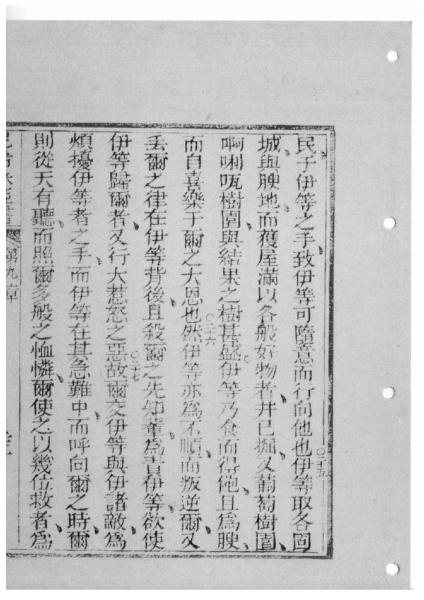 民于伊等之手致伊等可隨意而行向他也伊等取各固
城與腴地而獲屋滿以各般好物者井已掘及葡萄樹園
啊唎㕷樹園與結果之樹甚盛伊等乃食而得飽且為腴
而自喜樂于爾之大恩也然伊等亦為不順而叛逆爾又
丢爾之律在伊等背後且殺爾之先知輩為責伊等欲使
伊等歸爾者又行大惹怒之惡故爾交伊等與伊諸敵為
煩擾伊等者之手而伊等在其急難中而呼向爾之時爾
則從天有聽而照爾多般之恤憐爾使之以幾位救者為
第九章